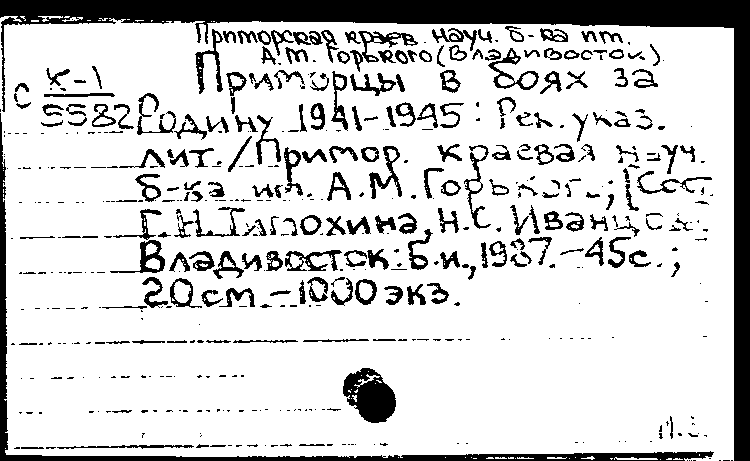 Приморская краев. науч. б-ка им.
А.М. Горького (Владивосток)
С К-1
5582
Приморцы в боях за
Родину 1941-1945: Рек. указ.
лит./Примор. краевая науч.
б-ка им. А.М. Горького; [Сост.
Г.Н. Тимохина, Н.С. Иванцова.
Владивосток: Б.и., 1987.-45с.;
20см.-1000экз.